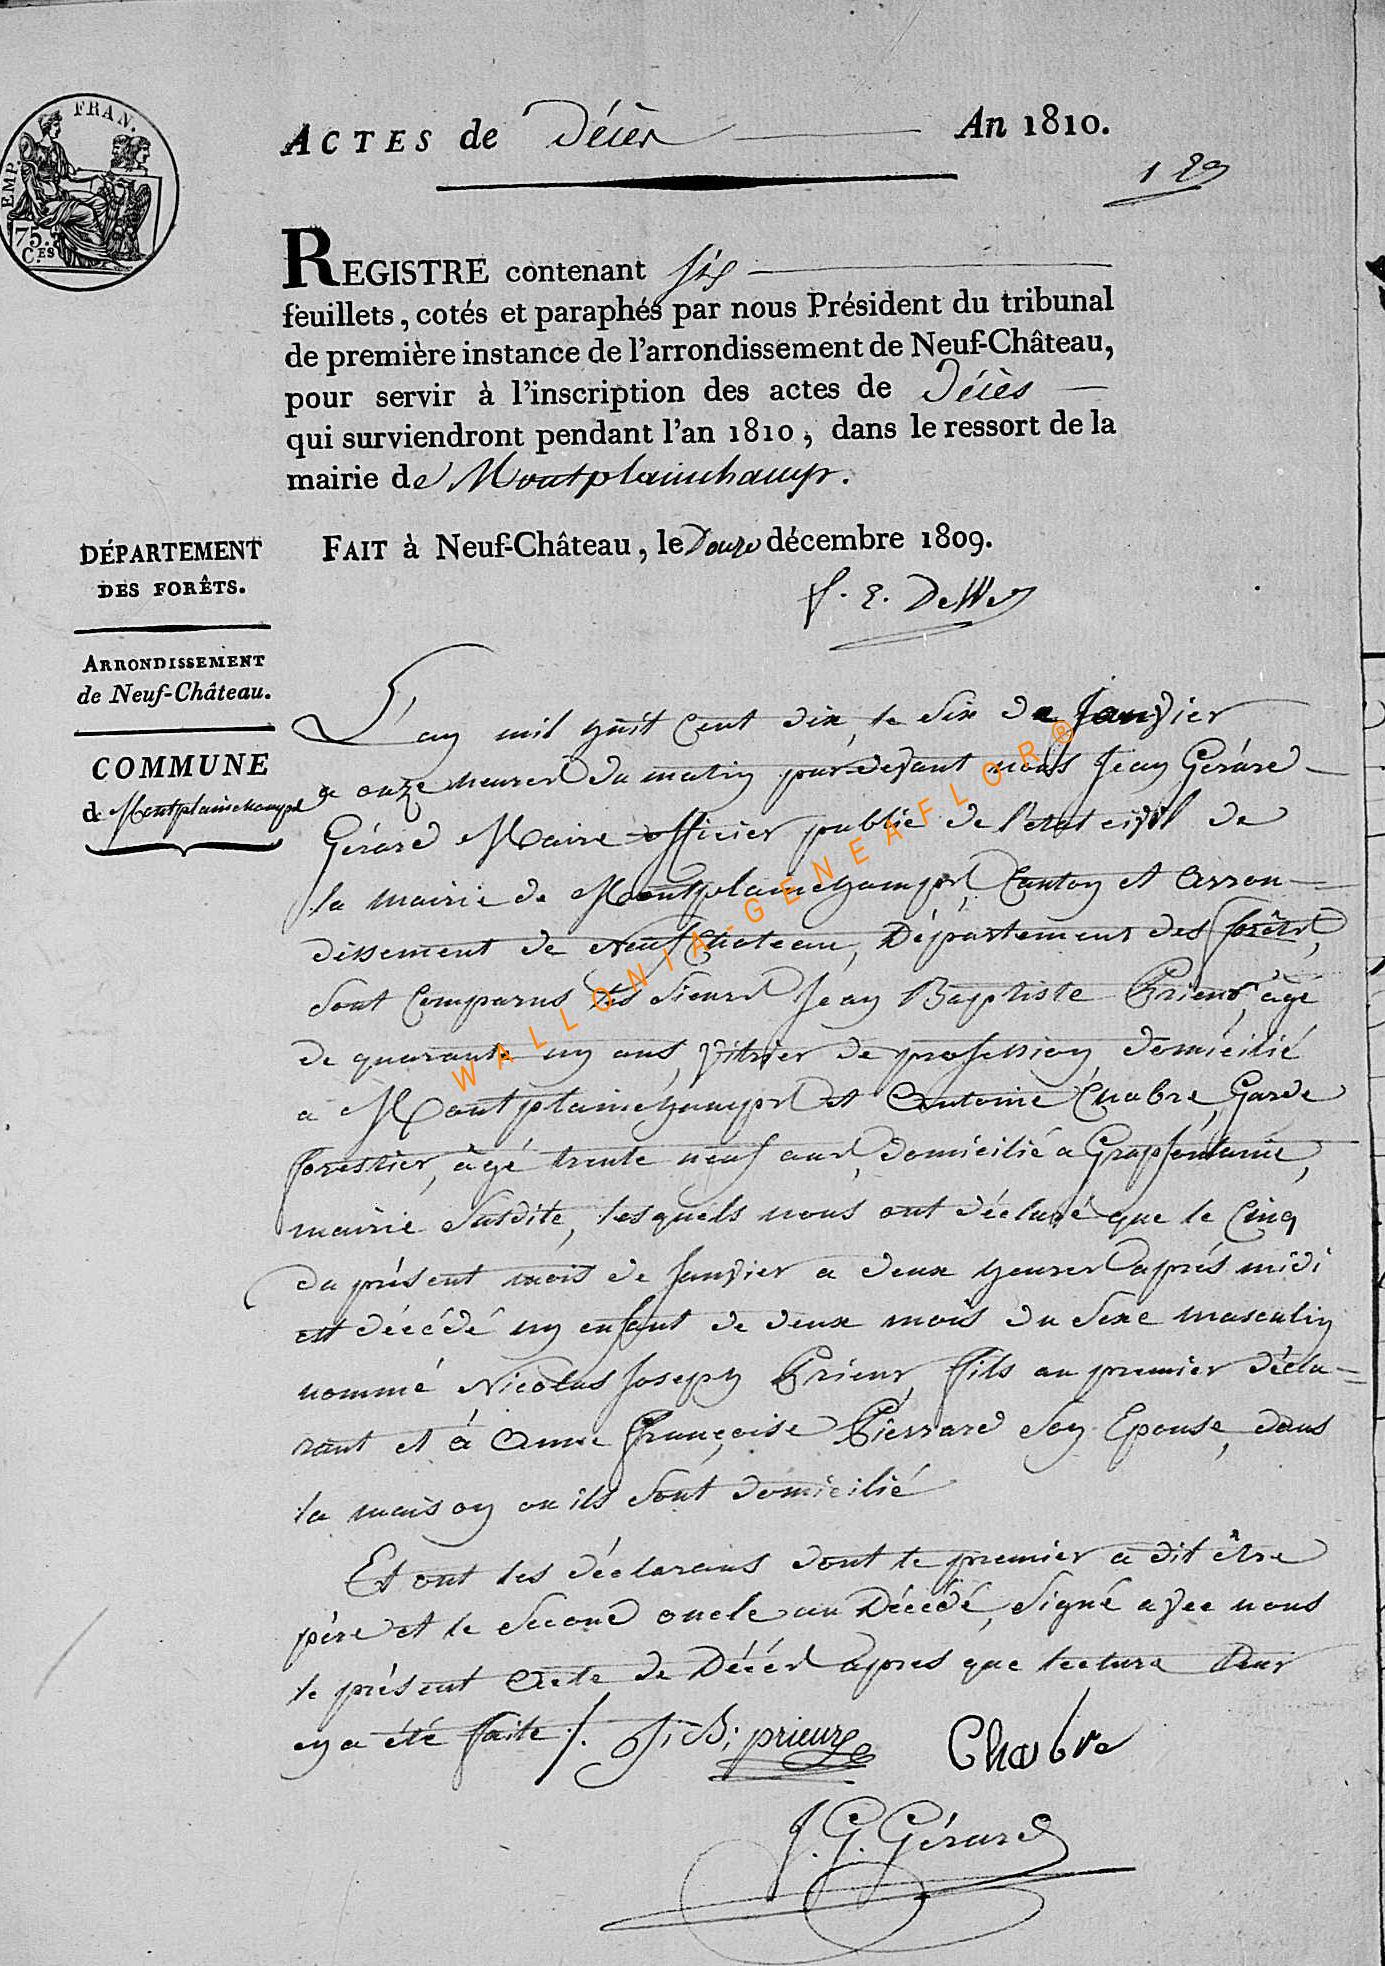 EMP. FRAN.
75.
C.ES
ACTES de Décès An 1810.
129
REGISTRE contenant six
feuillets, cotés et paraphés par nous Président du tribunal
de première instance de l'arrondissement de Neuf-Château,
pour servir à l'inscription des actes de Décès
qui surviendront pendant l'an 1810, dans le ressort de la
mairie de Montplainchamps.
FAIT à Neuf-Château, le Douze décembre 1809.
DÉPARTEMENT
DES FORÊTS.
ARRONDISSEMENT
de Neuf-Château.
COMMUNE
de Montplainchamps
L'an mil huit Cent dix, le Six de Janvier
a onze heures du matin pardevant nous Jean Gérard
Gérard Maire officier public de l'etat civil de
la mairie de Montplainchamps, Canton et Arron-
dissement de Neufchateau, Département des forêts,
Sont Comparus les Sieurs Jean Baptiste Prieur, âgé
de quarante un ans, Vitrier de profession, domicilié
a Montplainchamps et Antoine Chabre, Garde
forestier, âgé trente neuf ans, domicilié a Grapfontaine,
mairie Susdite, lesquels nous ont déclaré que le Cinq
du présent mois de Janvier a deux heures après midi
est décédé un enfant de deux mois du Sexe masculin
nommé Nicolas Joseph Prieur, fils au premier décla-
rant et à Anne Françoise Pierrard Son Epouse, dans
la maison ou ils Sont domicilié
Et ont les déclarans dont le premier a dit être
père et le Second oncle au Décédé, Signé avec nous
le présent Acte de Décès après que lecture leur
en a été faite /. J: B: prieur Chabre
J. G. Gérard
WALLONIA-GENEAFLOR®